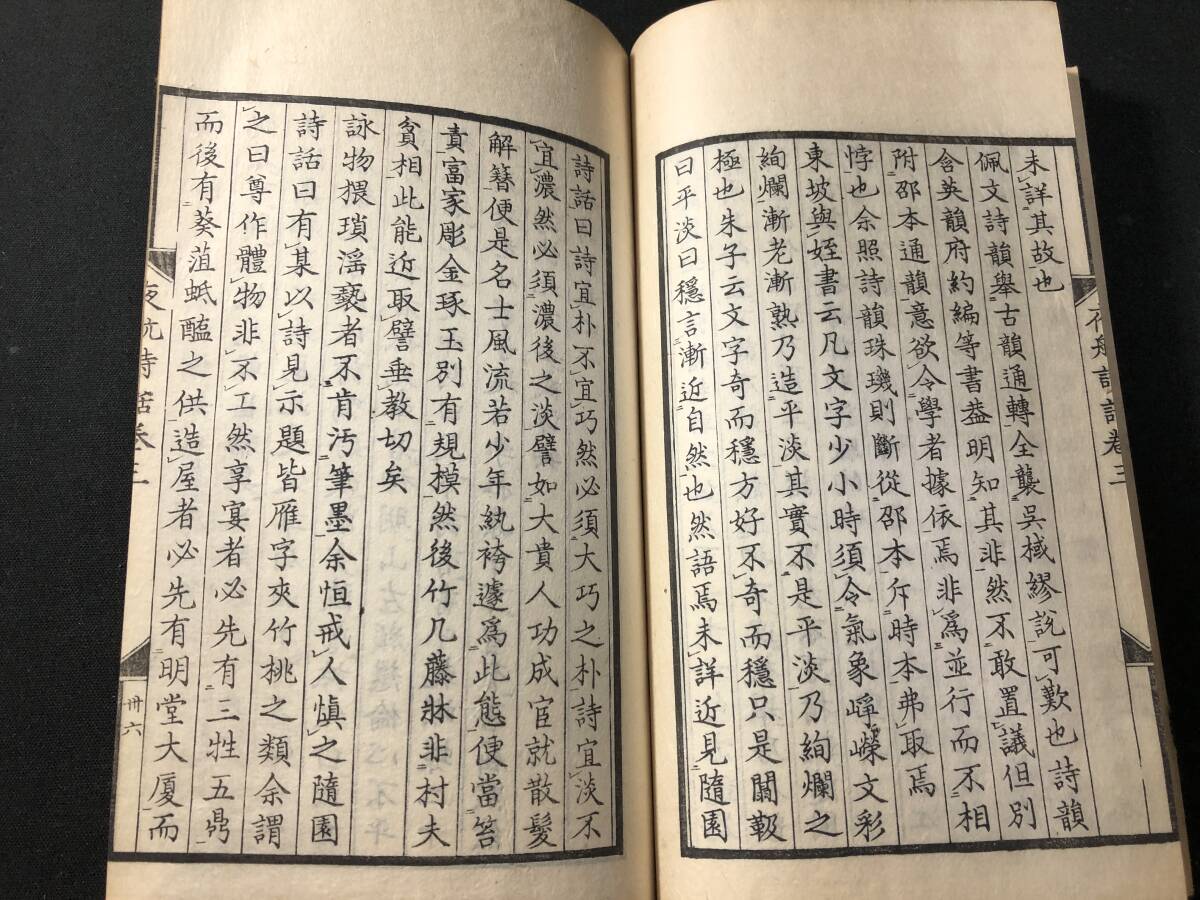 未詳其故也
佩文詩韻舉古韻通轉全襲吳棫繆說可歎也詩韻
含英韻府約編等書葢明知其非然不敢置議但別
附邵本通韻意欲令學者據依焉非爲並行而不相
悖也余照詩韻珠璣則斷從邵本斥時本弗取焉
東坡與姪書云凡文字少小時須令氣象崢嶸文彩
絢爛漸老漸熟乃造平淡其實不是平淡乃絢爛之
極也朱子云文字奇而穩方好不奇而穩只是闒靸
曰平淡曰穩言漸近自然也然語焉未詳近見隨園
詩話卷三
詩話曰詩宜朴不宜巧然必須大巧之朴詩宜淡不
宜濃然必須濃後之淡譬如大貴人功成宦就散髮
解簪便是名士風流若少年紈袴遽爲此態便當笞
責富家彫金琢玉別有規模然後竹几藤牀非村夫
貧相此能近取譬垂教切矣
詠物猥瑣淫褻者不肯汚筆墨余恒戒人愼之隨園
詩話曰有某以詩見示題皆雁字夾竹桃之類余謂
之曰尊作體物非不工然享宴者必先有三牲五鼎
而後有葵菹蚳醢之供造屋者必先有明堂大厦而
夜航詩話卷三
卅六